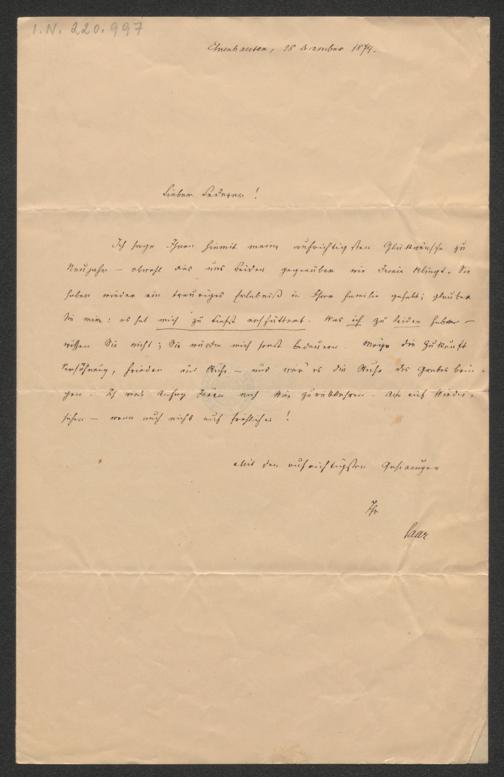 I.N. 220.997
Ehrenhausen, 28 December 1879.
Lieber Lederer!
Ich sage Ihnen hiemit meine aufrichtigsten Glückwünsche zu
Neujahr — obwohl das uns Beiden gegenüber wie Ironie klingt. Sie
haben wieder ein trauriges Erlebniß in Ihrer Familie gehabt; glauben
Sie mir: es hat mich zu tiefst erschüttert. Was ich zu leiden habe —
wissen Sie nicht; Sie würden mich sonst bedauern. Möge die Zukunft
Versöhnung, Frieden und Ruhe — und wär' es die Ruhe des Grabes brin-
gen. Ich werde Anfang nach Wien zurückkehren. Auf Wieder-
sehen — wenn auch nicht auf fröhliches!
Mit den aufrichtigsten Gesinnungen
Ihr
Saar